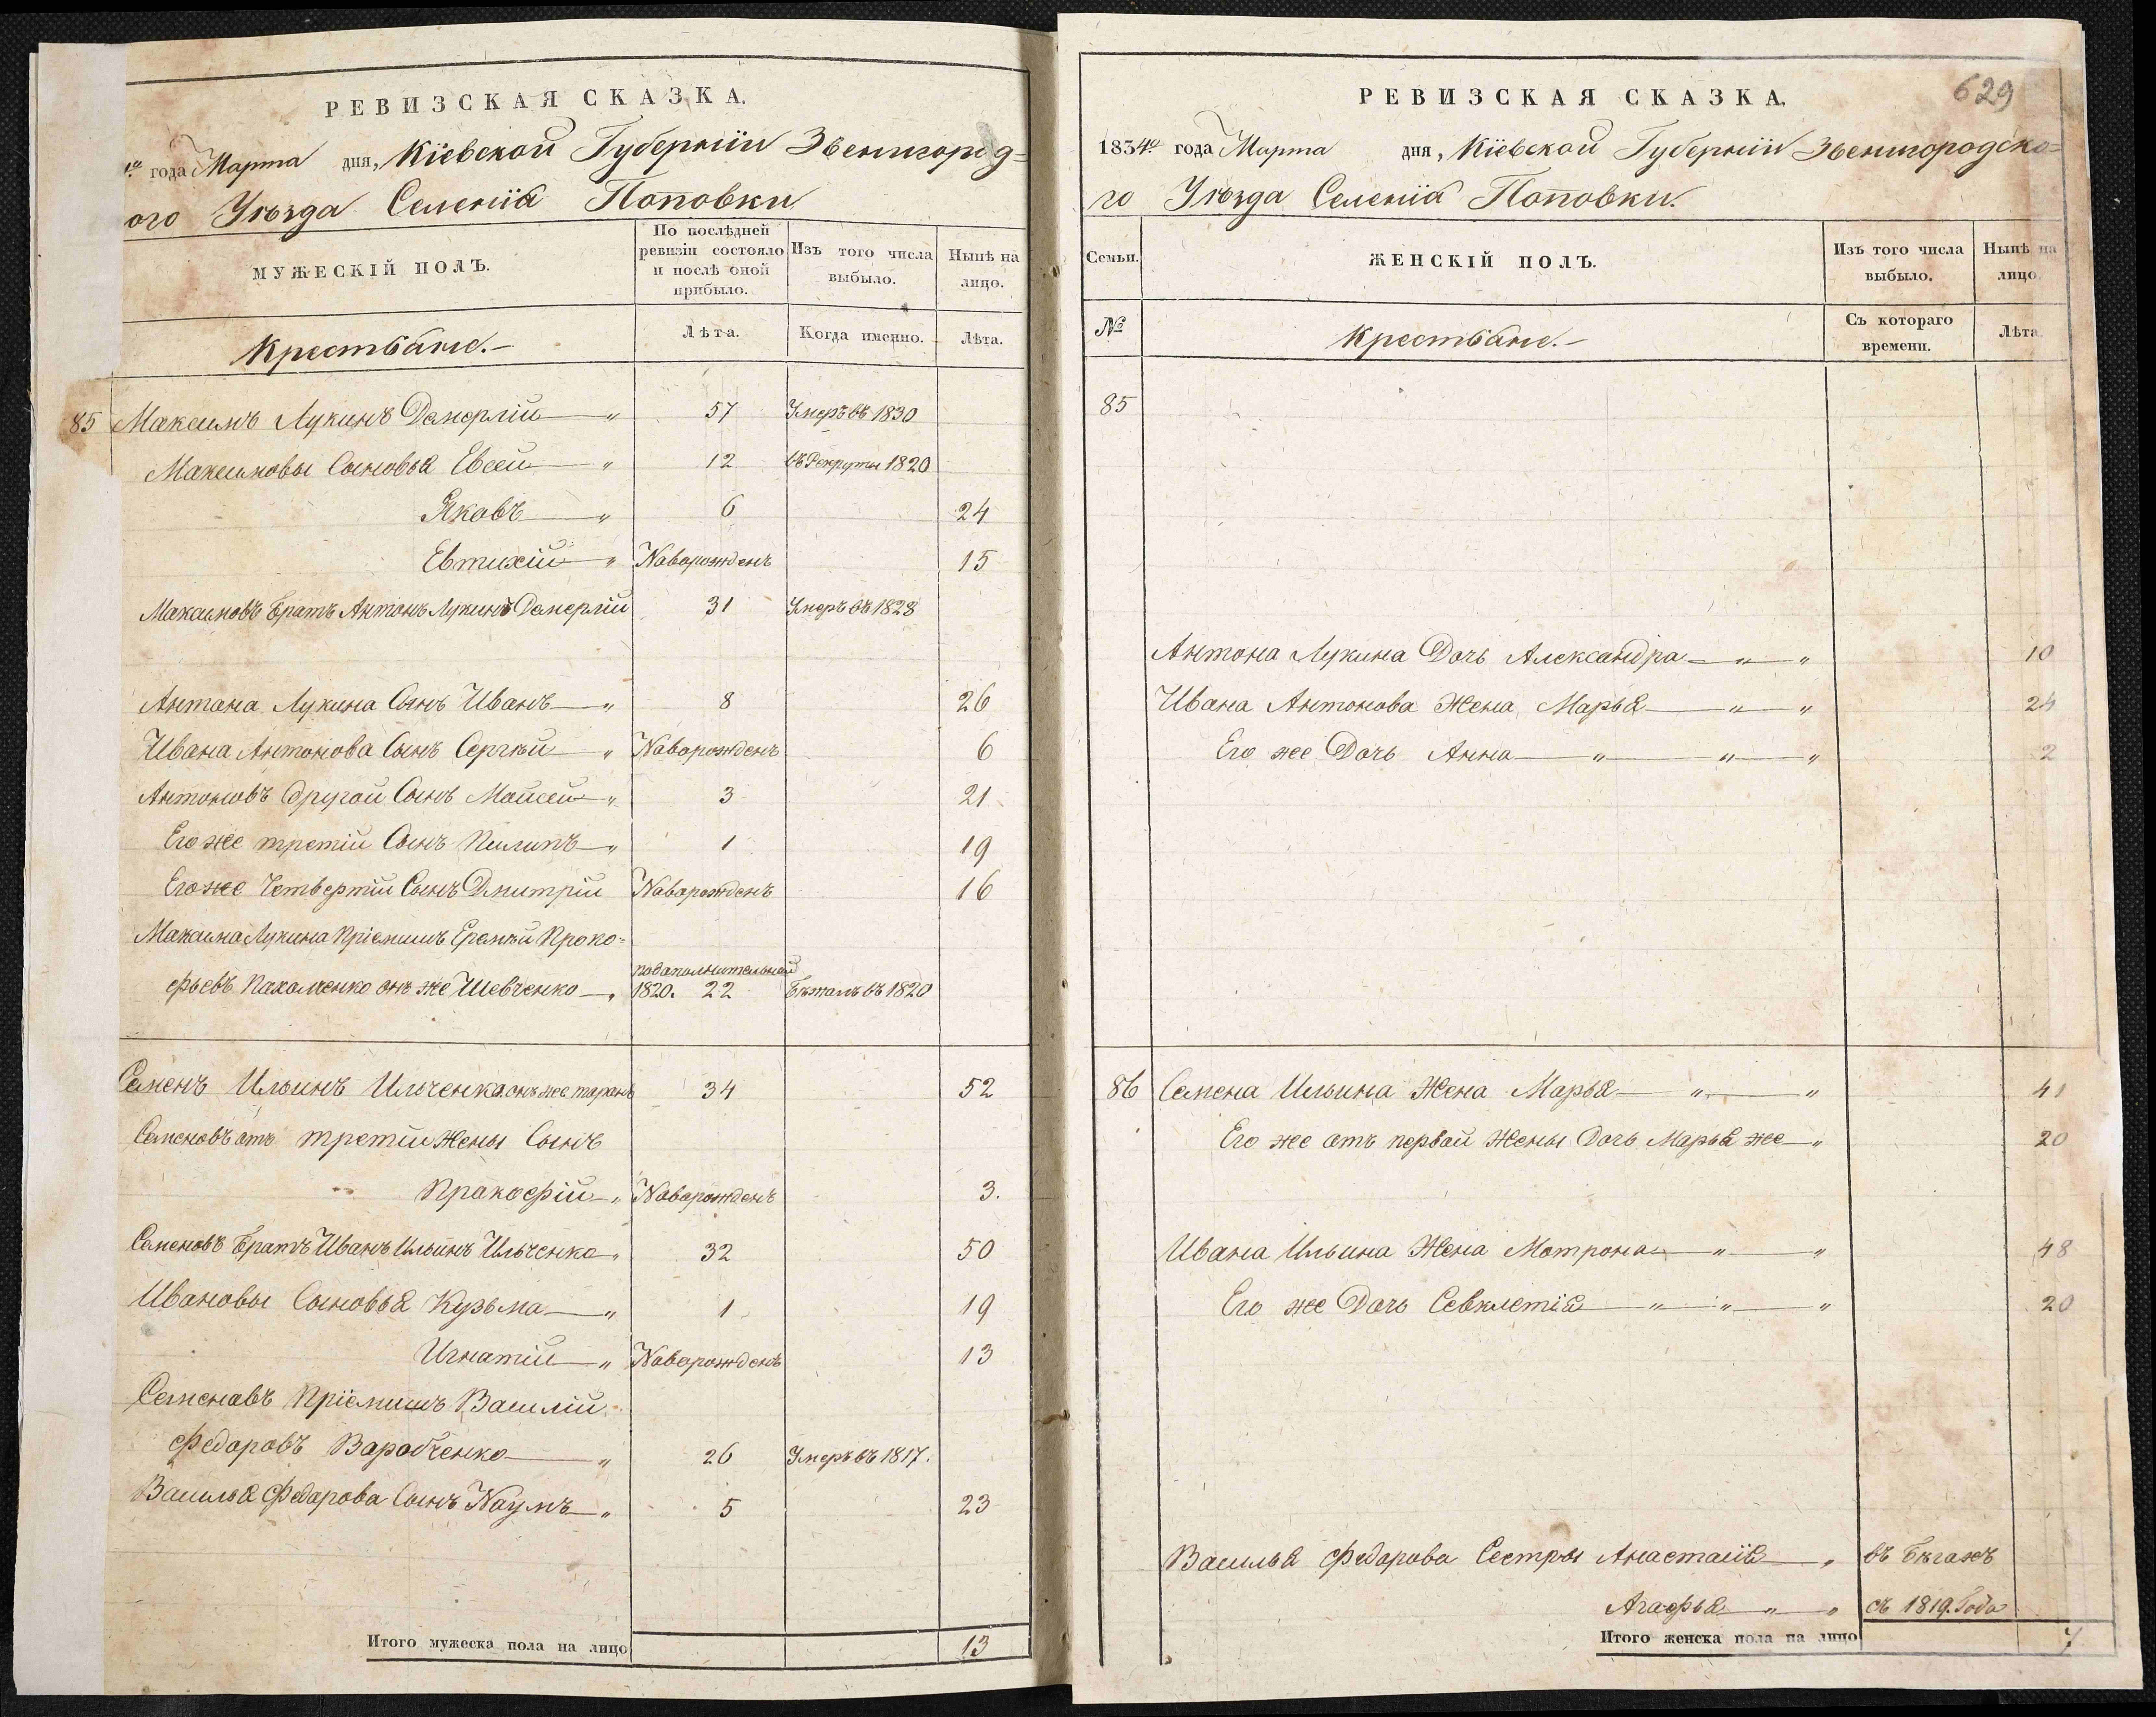 РЕВИЗСКАЯ СКАЗКА.
года Марта дня, Кіевской Губерніи Звенигород=
ого Уѣзда Селенія Поповки
МУЖЕСКІЙ ПОЛЪ.
По послѣдней ревизіи состояло и послѣ оной прибыло.
Изъ того числа выбыло.
Нынѣ на лицо.
Крестьяне.
Лѣта.
Когда именно.
Лѣта.
85 Максимъ Лукинъ 57 Умеръ въ 1830
Максимовы Сыновья Евсей 12 въ Рекруты 1820
Яковъ 6 24
Евтихій Новорожденъ 15
Максимовъ Братъ Антонъ Лукинъ 31 Умеръ въ 1828
Антона Лукина Сынъ Иванъ 8 26
Ивана Антонова Сынъ Сергѣй Новорожденъ 6
Антоновъ другой Сынъ Мойсей 3 21
Его же третій Сынъ Пилипъ 1 19
Его же Четвертій Сынъ Дмитрій Новорожденъ 16
Максима Лукина Пріемишъ Еремѣй Проко=
фьевъ онъ же Шевченко 1820. 22 Бѣжалъ въ 1820
Семенъ Ильинъ Ильченко онъ же таранъ 34 52
Семеновъ отъ третій Жены Сынъ
Прокофій Новорожденъ 3.
Семеновъ Братъ Иванъ Ильинъ Ильченко 32 50
Ивановы Сыновья Кузьма 1 19
Игнатій Новорожденъ 13
Семеновъ Пріемишъ Василій
Федоровъ Воробченко 26 Умеръ въ 1817.
Василья Федорова Сынъ Наумъ 5 23
Итого мужеска пола на лицо 13
629
РЕВИЗСКАЯ СКАЗКА.
1834го года Марта дня, Кіевской Губерніи Звенигородско=
го Уѣзда Селенія Поповки.
Семьи.
ЖЕНСКІЙ ПОЛЪ.
Изъ того числа выбыло.
Нынѣ на лицо.
№
Крестьяне.
Съ котораго времени.
Лѣта
85
Антона Лукина Дочь Александра 10
Ивана Антонова Жена Марья 24
Его же Дочь Анна 2
86 Семена Ильина Жена Марья 41
Его же отъ первой Жены Дочь Марья же 20
Ивана Ильина Жена Мотрона 48
Его же Дочь Севклетія 20
Василья Федорова Сестры Анастасія въ бѣгахъ
Агафья съ 1819. Года
Итого женска пола на лицо 7